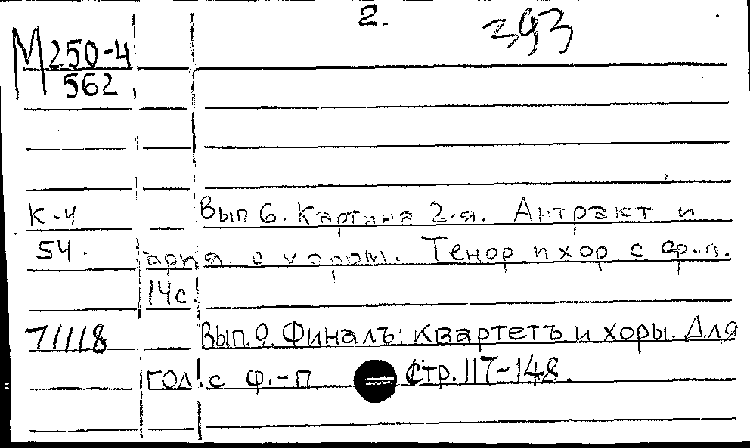 2.
393
М 250-4
562
к-4 Вып 6. Картина 2-я. Антракт и
54. ария с хором. Тенор и хор с ф.-п.
14с.
71118 Вып. 9. Финалъ: квартетъ и хоры. Для
гол. с ф.-п – Стр. 117-148.